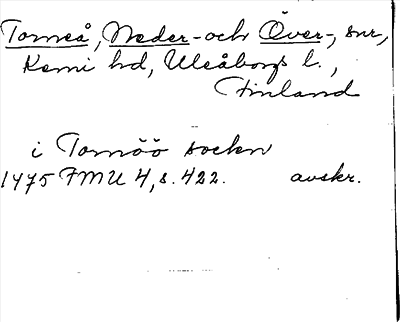 Torneå, Neder- och Över-, snr,
Kemi hd, Uleåborgs l.,
Finland
i Tornöö sockn
1475 FMU 4, s. 422. avskr.